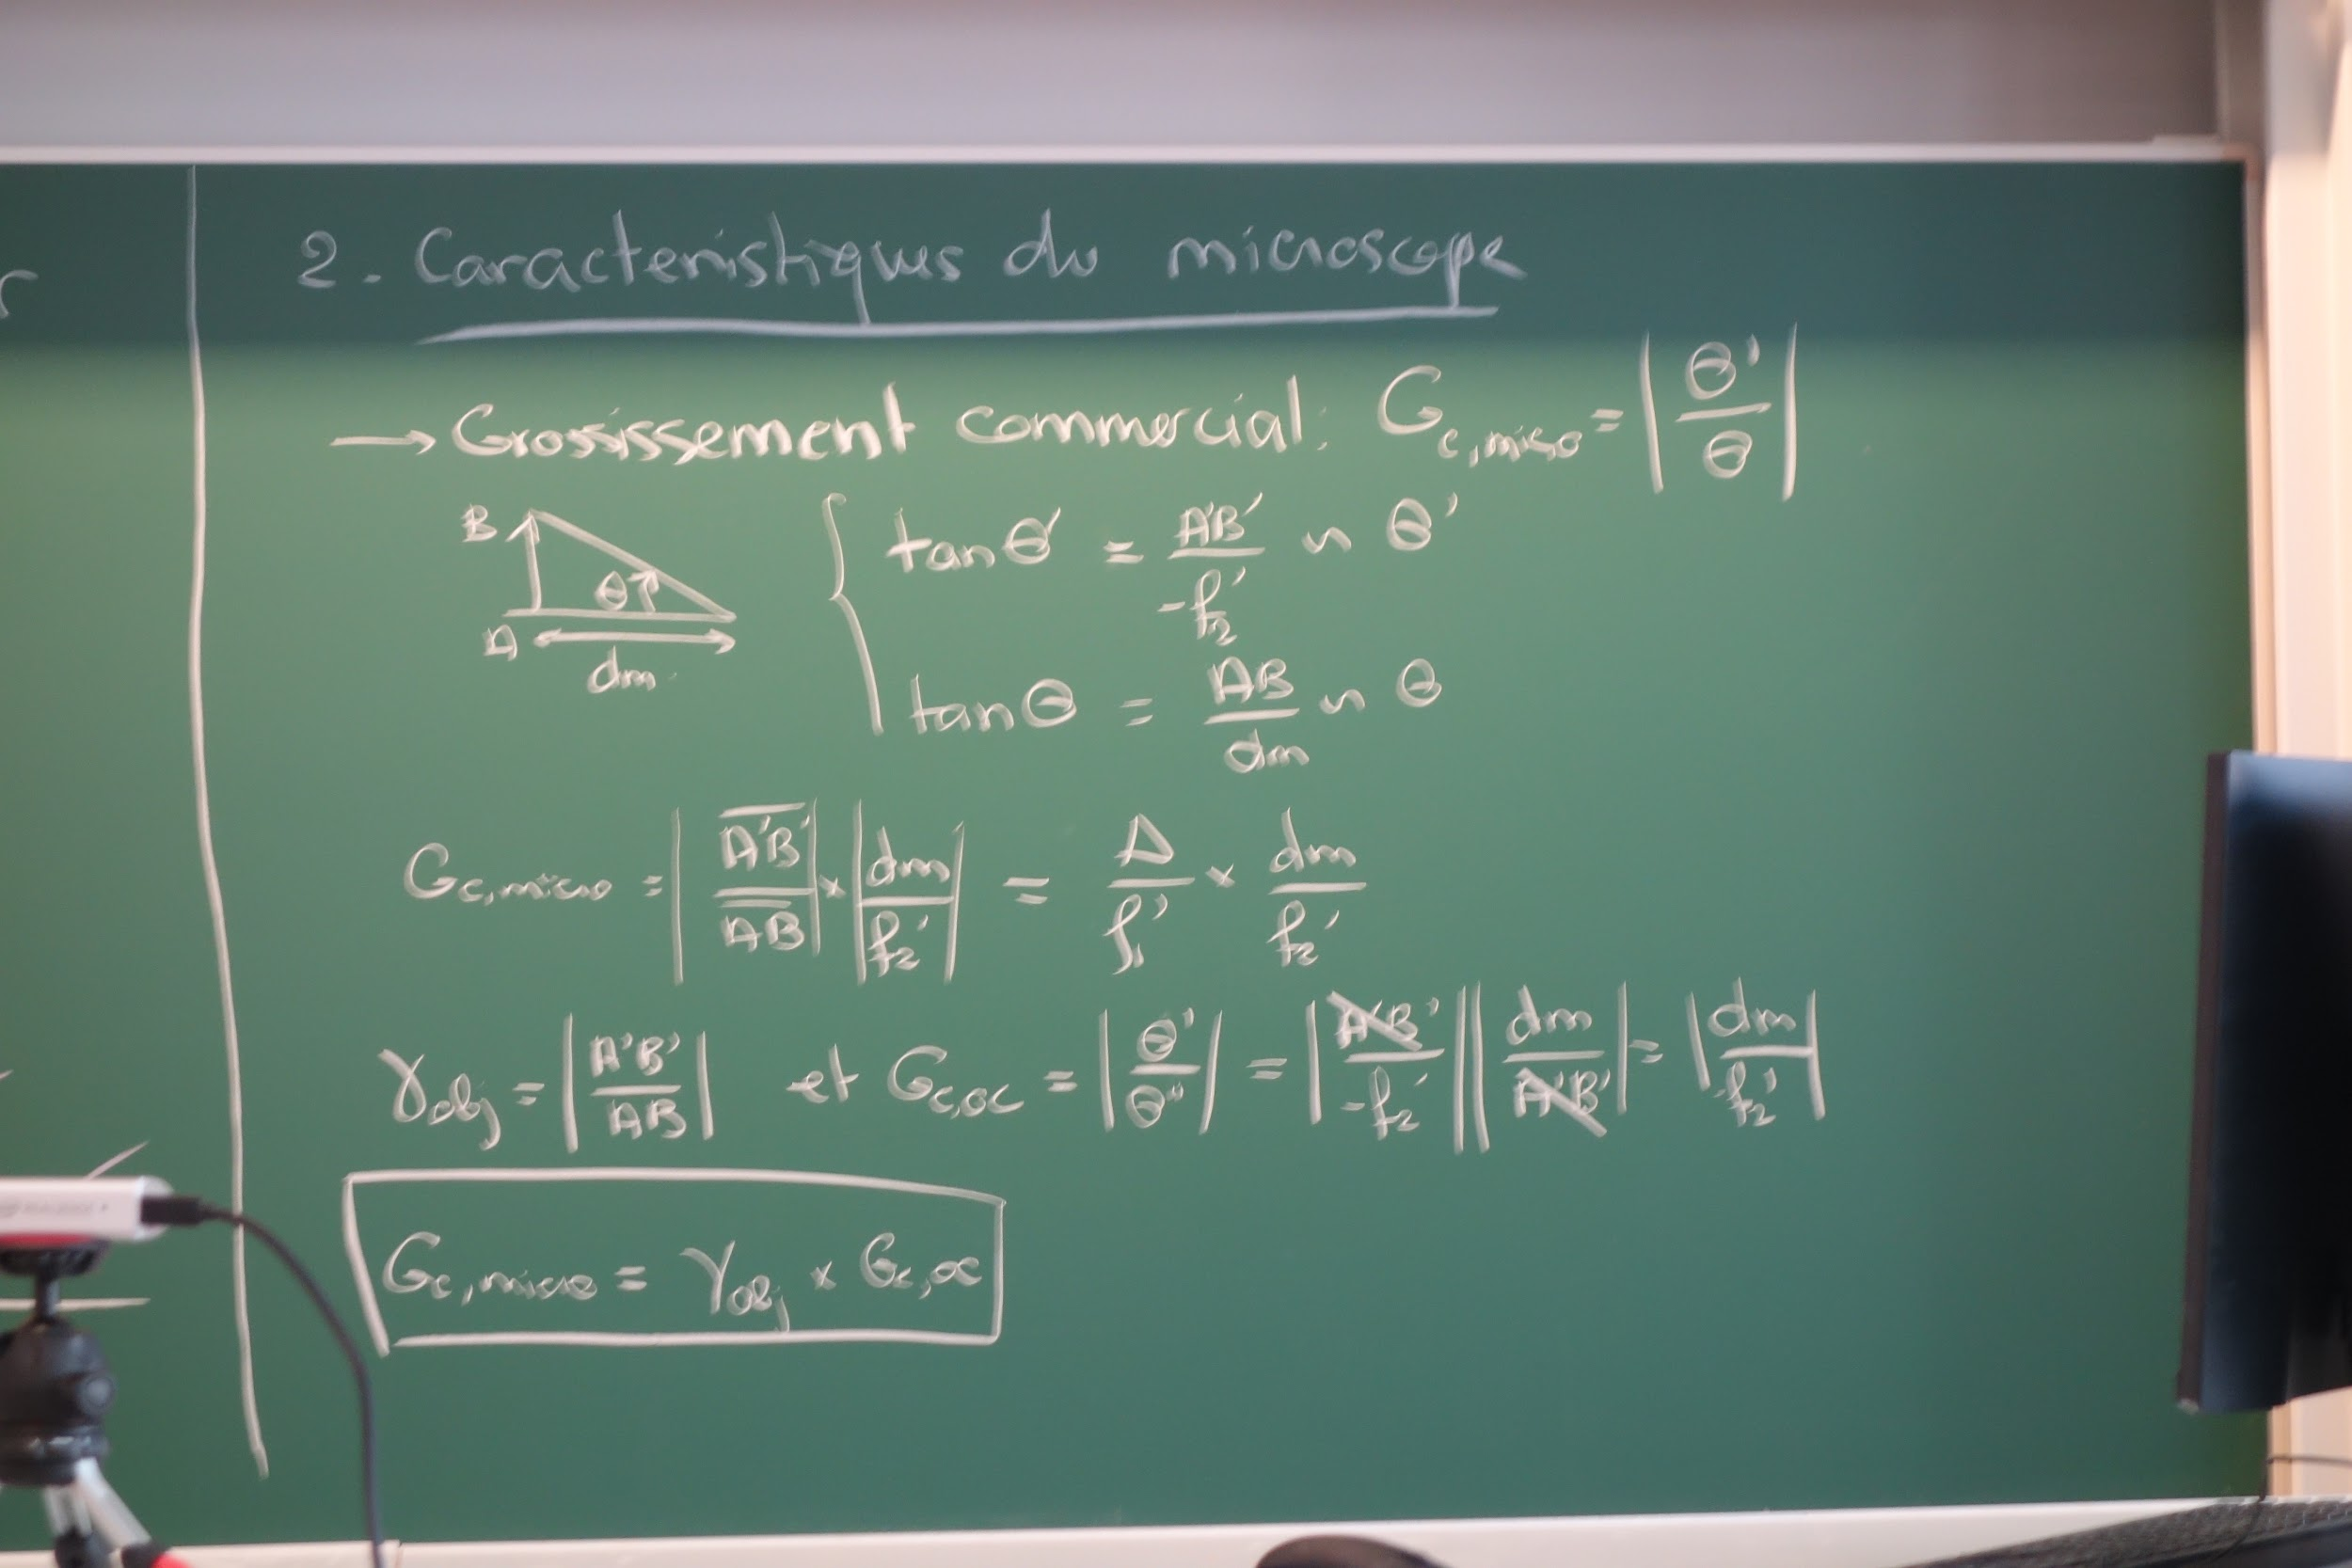 2. Caracteristiques du microscope
→ Grossissement commercial : G_{c,micro} = |θ'/θ|
B
θ
A
dm
tanθ' = A'B'/-f'₂ ∽ θ'
tanθ = AB/dm ∽ θ
G_{c,micro} = |A̅'̅B̅'̅/A̅B̅| × |dm/f₂'| = Δ/f₁' × dm/f₂'
γ_{obj} = |A'B'/AB| et G_{c,oc} = |θ'/θ''| = |A'B'/-f₂'||dm/A'B'| = |dm/-f₂'|
G_{c,micro} = γ_{obj} × G_{c,oc}